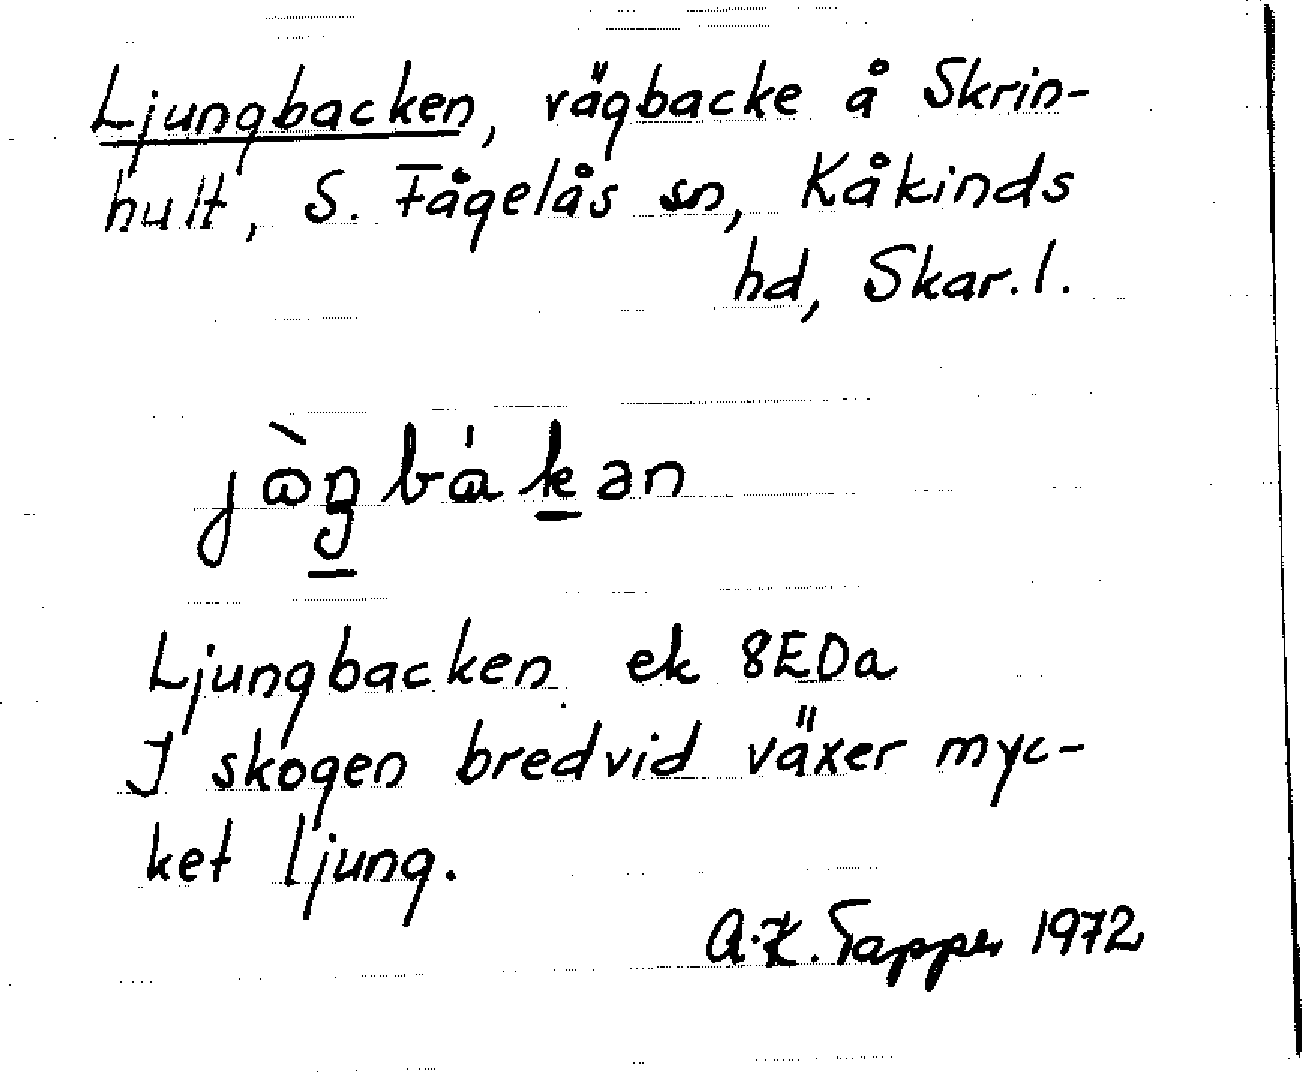 Ljungbacken, vägbacke å Skrin-
hult, S. Fågelås sn, Kåkinds
hd, Skar. l.
Ljungbacken ek 8EDa
I skogen bredvid växer myc-
ket ljung.
A.K. Tapper 1972